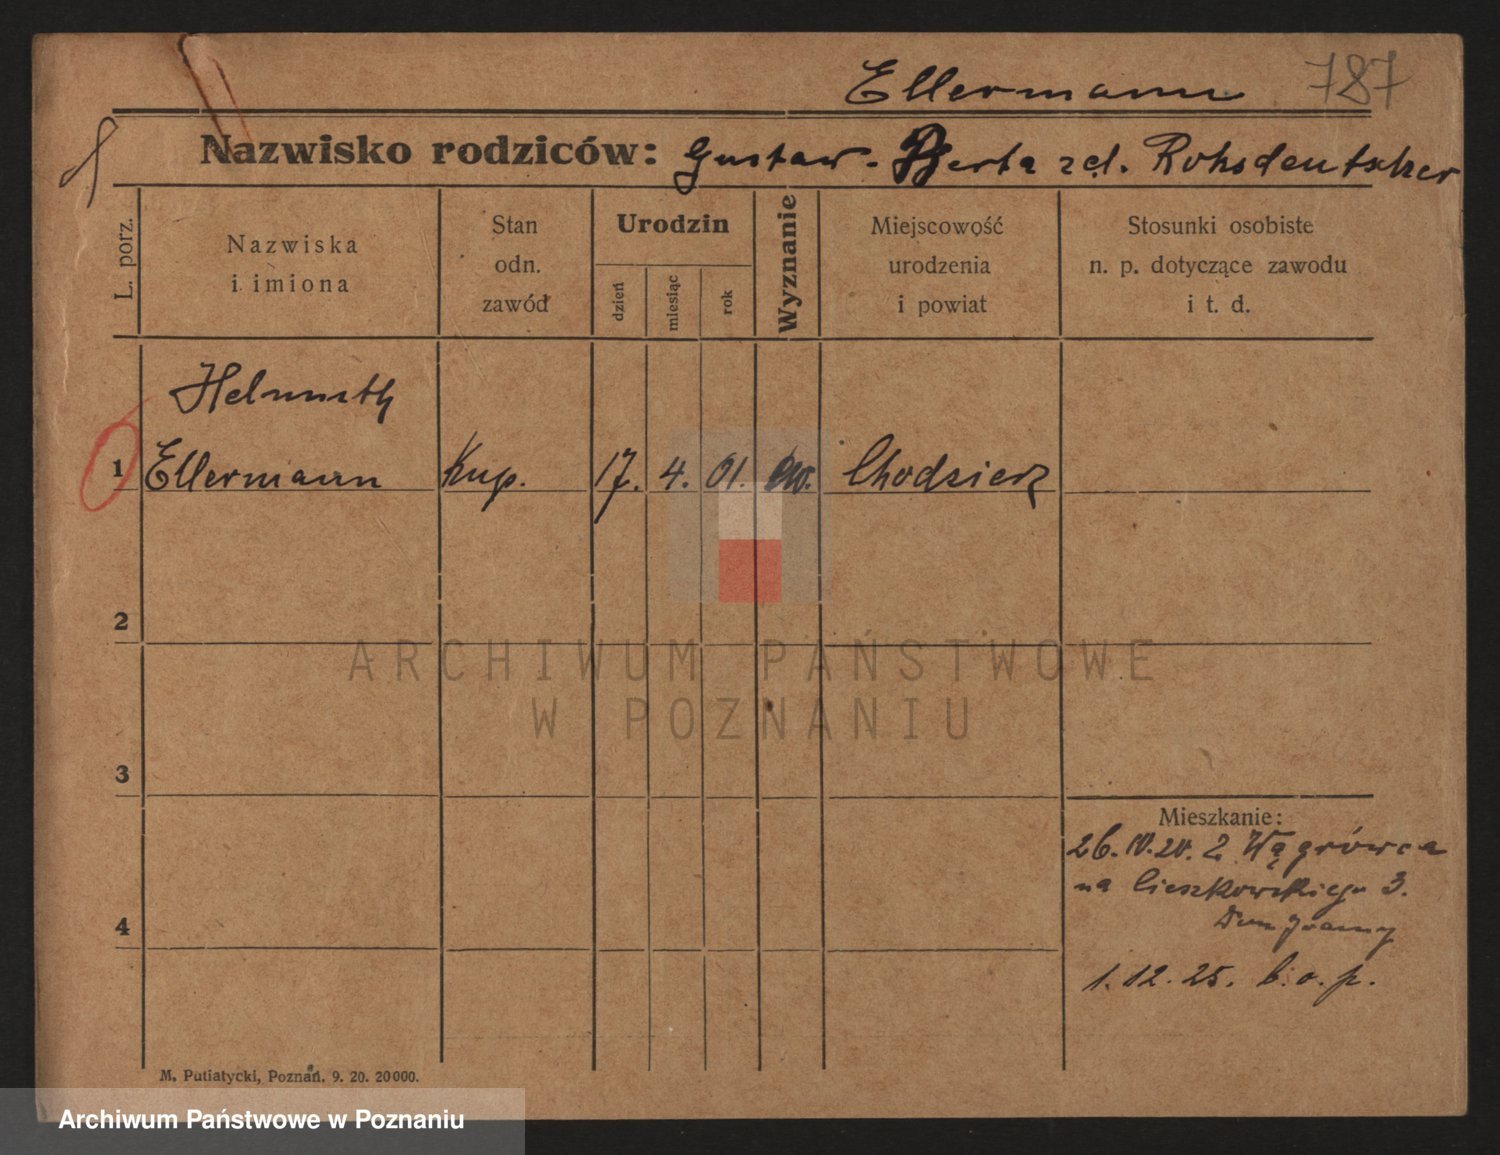 Ellermann 787
Nazwisko rodziców: Gustaw - Berta zd. Rohsdeutscher
L. porz.
Nazwiska
i imiona
Stan
odn.
zawód
Urodzin
dzień
miesiąc
rok
Wyznanie
Miejscowość
urodzenia
i powiat
Stosunki osobiste
n. p. dotyczące zawodu
i t. d.
Helmuth
1 Ellermann Kup. 17. 4. 01. ew. Chodzież
2
ARCHIWUM PAŃSTWOWE
W POZNANIU
3
Mieszkanie:
26. IV. 24. Z Wągrówca
na Cieszkowskiego 3.
4
1. 12. 25. b. o. p.
M. Putiatycki, Poznań. 9. 20. 20000.
Archiwum Państwowe w Poznaniu